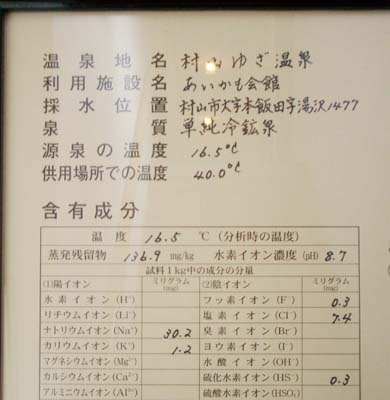 温泉地名 村山ゆぎ温泉
利用施設名 あいかも会館
採水位置 村山市大字本飯田字湯沢1477
泉質 単純冷鉱泉
源泉の温度 16.5℃
供用場所での温度 40.0℃
含有成分
温度 16.5 ℃ (分析時の温度)
蒸発残留物 136.9 mg/kg 水素イオン濃度 (pH) 8.7
試料1kg中の成分の分量
(1)陽イオン ミリグラム (mg) (2)陰イオン ミリグラム (mg)
水素イオン(H⁺) フッ素イオン(F⁻) 0.3
リチウムイオン(Li⁺) 塩素イオン(Cl⁻) 7.4
ナトリウムイオン(Na⁺) 30.2 臭素イオン(Br⁻)
カリウムイオン(K⁺) 1.2 ヨウ素イオン(I⁻)
マグネシウムイオン(Mg²⁺) 水酸イオン(OH⁻)
カルシウムイオン(Ca²⁺) 硫化水素イオン(HS⁻) 0.3
アルミニウムイオン(Al³⁺) 硫酸水素イオン(HSO₄⁻)